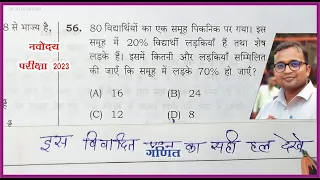 8 से भाज्य है,
नवोदय
परीक्षा 2023
56. 80 विद्यार्थियों का एक समूह पिकनिक पर गया। इस
समूह में 20% विद्यार्थी लड़कियाँ हैं तथा शेष
लड़के हैं। इसमें कितनी और लड़कियाँ सम्मिलित
की जाएँ कि समूह में लड़के 70% हो जाएँ?
(A) 16 (B) 24
(C) 12 (D) 8
इस विवादित गणित का सही हल देखे